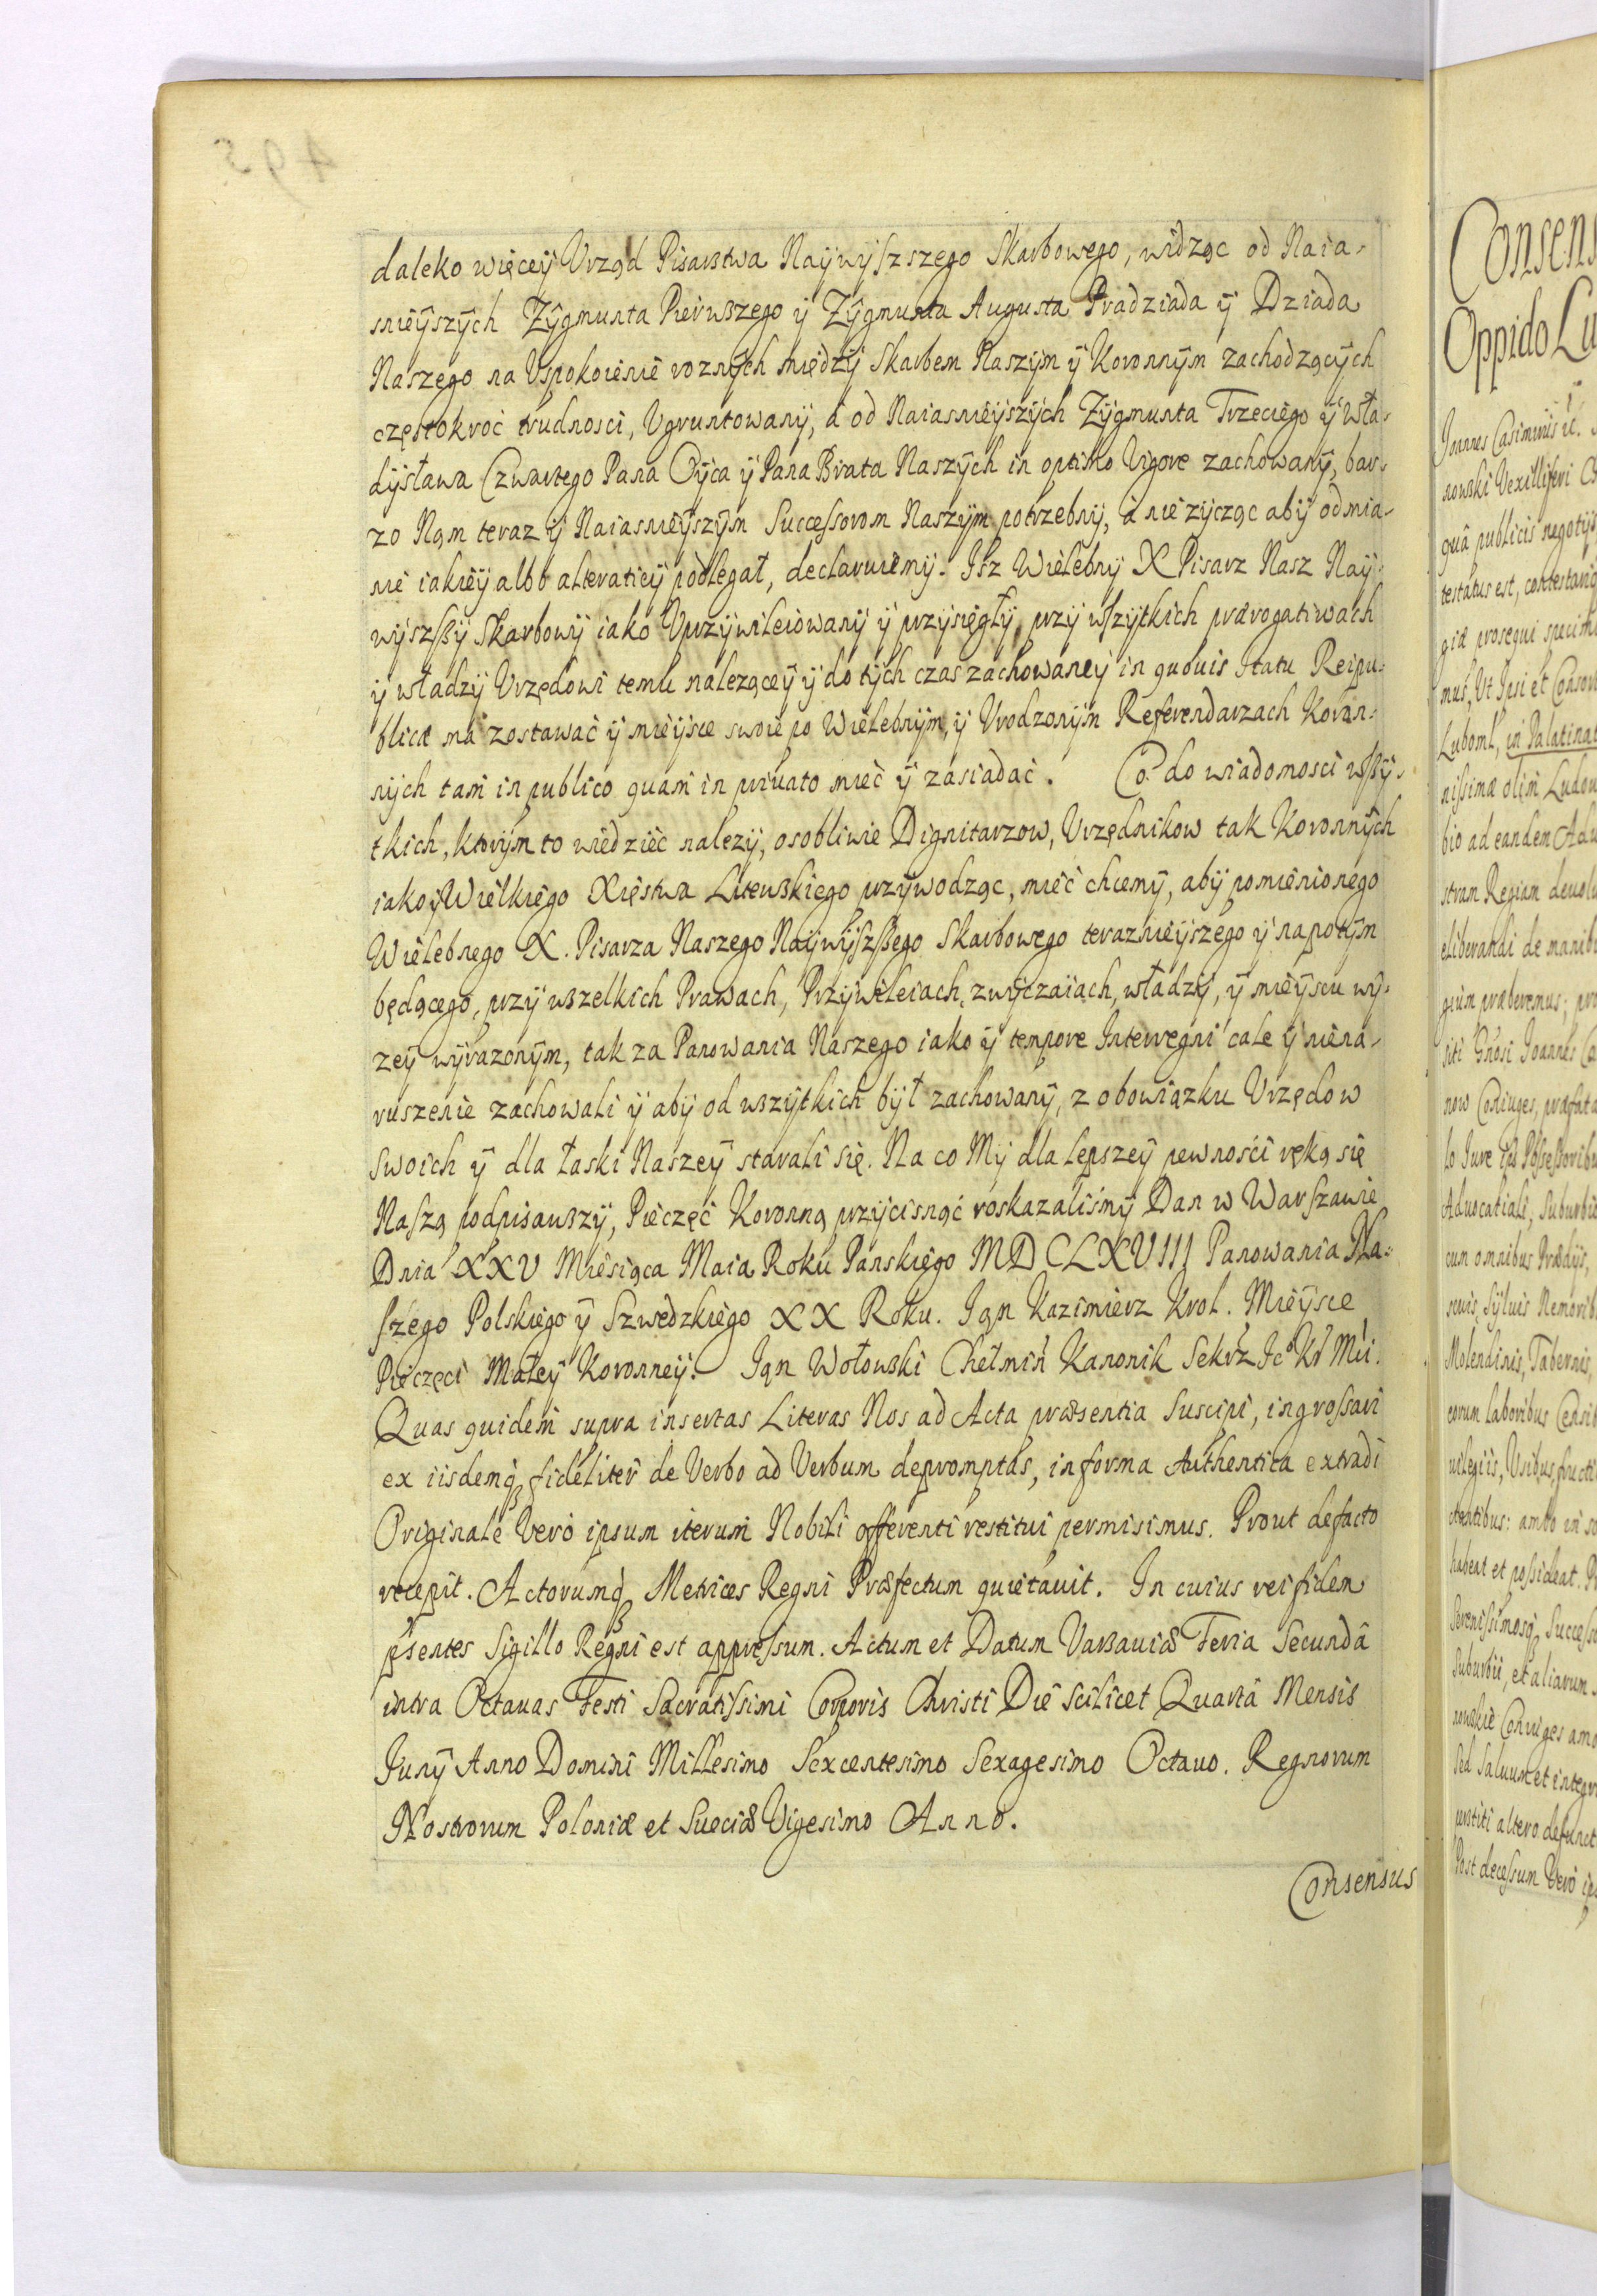 daleko więcey Vrząd Pisarstwa Naywyſzszego Skarbowego, widząc od Naia-
snieyszych Zygmunta Pierwszego y Zygmunta Augusta Pradziada y Dziada
Naszego na Vspokoienie roznych między Skarbem Naszym y Koronnym zachodzących
częstokroć trudnosci, Vgruntowany, á od Naiasnieyszych Zygmunta Trzeciego y Wła-
dysława Czwartego Pana Oyca y Pana Brata Naszych in optimo Vigore zachowany, bar-
zo Nam teraz y Naiasnieyszym Succeſsorom Naszym potrzebny, á nie zycząc aby odmia-
nie iakiey albo alteratiey podlegał, declaruiemy. Iſz Wielebny X Pisarz Nasz Nay-
wyszſzy Skarbowy iako Vprzywileiowany y przysięgły, przy wſzytkich prærogatiwach
y władzy Vrzędowi temu nalezącey y do tych czas zachowaney in quouis statu Reipu-
blicæ ma zostawać y mieysce swoie po Wielebnym, y Vrodzonym Referendarzach Koron-
nych tam in publico quam in priuato mieć y zasiadać. Co do wiadomosci wſzy-
tkich, ktorym to wiedzieć nalezy, osobliwie Dignitarzow, Vrzędnikow tak Koronnych
iako y Wielkiego Xięstwa Litewskiego przywodząc, mieć chcemy, aby pomienionego
Wielebnego X. Pisarza Naszego Naywyſzſzego Skarbowego teraznieyszego y napotym
będącego, przy wszelkich Prawach, Przywileiach, zwyczaiach, władzy, y mieyscu wy-
zey wyrazonym, tak za Panowania Naszego iako y tempore Interregni cale y niena-
ruszenie zachowali y aby od wszytkich był zachowany, z obowiązku Vrzędow
Swoich y dla łaski Naszey starali się. Na co My dla lepszey pewnosći ręką się
Naſzą podpisawszy, Pieczęć Koronną przycisnąć roskazalismy Dan w Warſzawie
Dnia XXV Miesiąca Maia Roku Panskiego MDCLXVIII Panowania Na-
ſzego Polskiego y Szwedzkiego XX Roku. Ian Kazimierz Krol. Mieysce
Pieczęci Małey Koronney. Ian Wołowski Chełmiń Kanonik Sekrz Ic° Kr Mći.
Quas quidem supra insertas Literas Nos ad Acta præsentia Suscipi, ingroſsari
ex iisdemq́ fideliter de Verbo ad Verbum depromptas, in forma Authentica extradi
Originale Vero ipsum iterum Nobili offerenti restitui permisimus. Prout defacto
recepit. Actorumq́ Metrices Regni Præfectum quietauit. In cuius rei fidem
pſentes Sigillo Regni est appreſsum. Actum et Datum Varsauiæ Feria Secundâ
intra Octauas Festi Sacratiſsimi Corporis Christi Die scilicet Quartâ Mensis
Iuny Anno Domini Millesimo Sexcentesimo Sexagesimo Octauo. Regnorum
Nostrorum Poloniæ et Sueciæ Vigesimo Anno.
Consensus
495
Consens
Oppido Lu
Joannes Casimirus
nowski Vexilliferi
quâ publicis negotijs
testatus est,
giæ prosequi specim
mus, Vt Ipsi et Consor
Luboml, in Palatinat
niſsimæ olim Ludou
bio ad eandem Adu
stram Regiam deuolu
gium præberemus; pro
now Coniuges, præfata
lo Iure
Aduocatiali, Suburbi
cum omnibus Prædijs,
Molendinis, Tabernis,
eorum laboribus Censi
uilegiis, Vsibus, fructi
habeat et poſsideat. P
Sereniſsimosq́ Succeſs
Suburbii, et aliarum
Coniuges amb
Sed Saluum et integr
altero defunct
Post deceſsum Vero ips